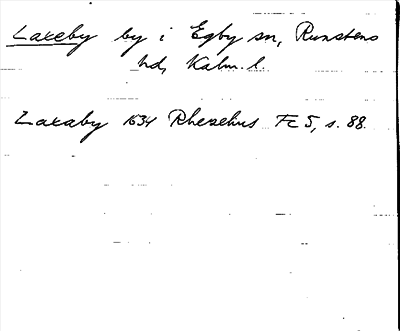 Laxeby by i Egby sn, Runstens
hd, Kalm. l.
Laxaby 1634 Rhezelius Fc 5, s. 88.